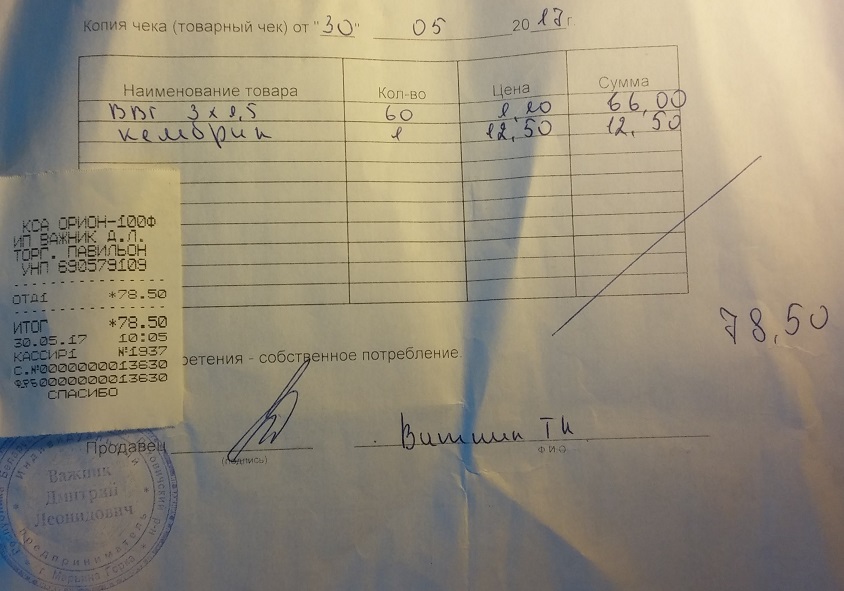 Копия чека (товарный чек) от "30" 05 2017 г.
Наименование товара Кол-во Цена Сумма
ВВГ 3х1,5 60 1,10 66,00
кембрик 1 12,50 12,50
КСА ОРИОН-100Ф
ИП ВАЖНИК Д.Л.
ТОРГ. ПАВИЛЬОН
УНП 690579109
ОТД1 *78.50
ИТОГ *78.50
30.05.17 10:05
КАССИР1 №1937
С.№0000000013630
0000000013630
СПАСИБО
78,50
ретения - собственное потребление.
Продавец
(подпись)
Ф.И.О.
Важник
Дмитрий
Леонидович
Предприниматель
г. Марьина Горка